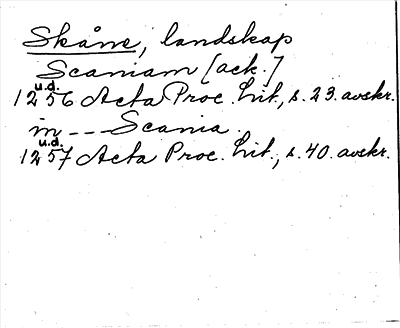 Skåne, landskap
Scaniam [ack.]
u.d.
1256 Acta Proc. Lit., s. 23. avskr.
in --- Scania.
u.d.
1257 Acta Proc. Lit., s. 40. avskr.